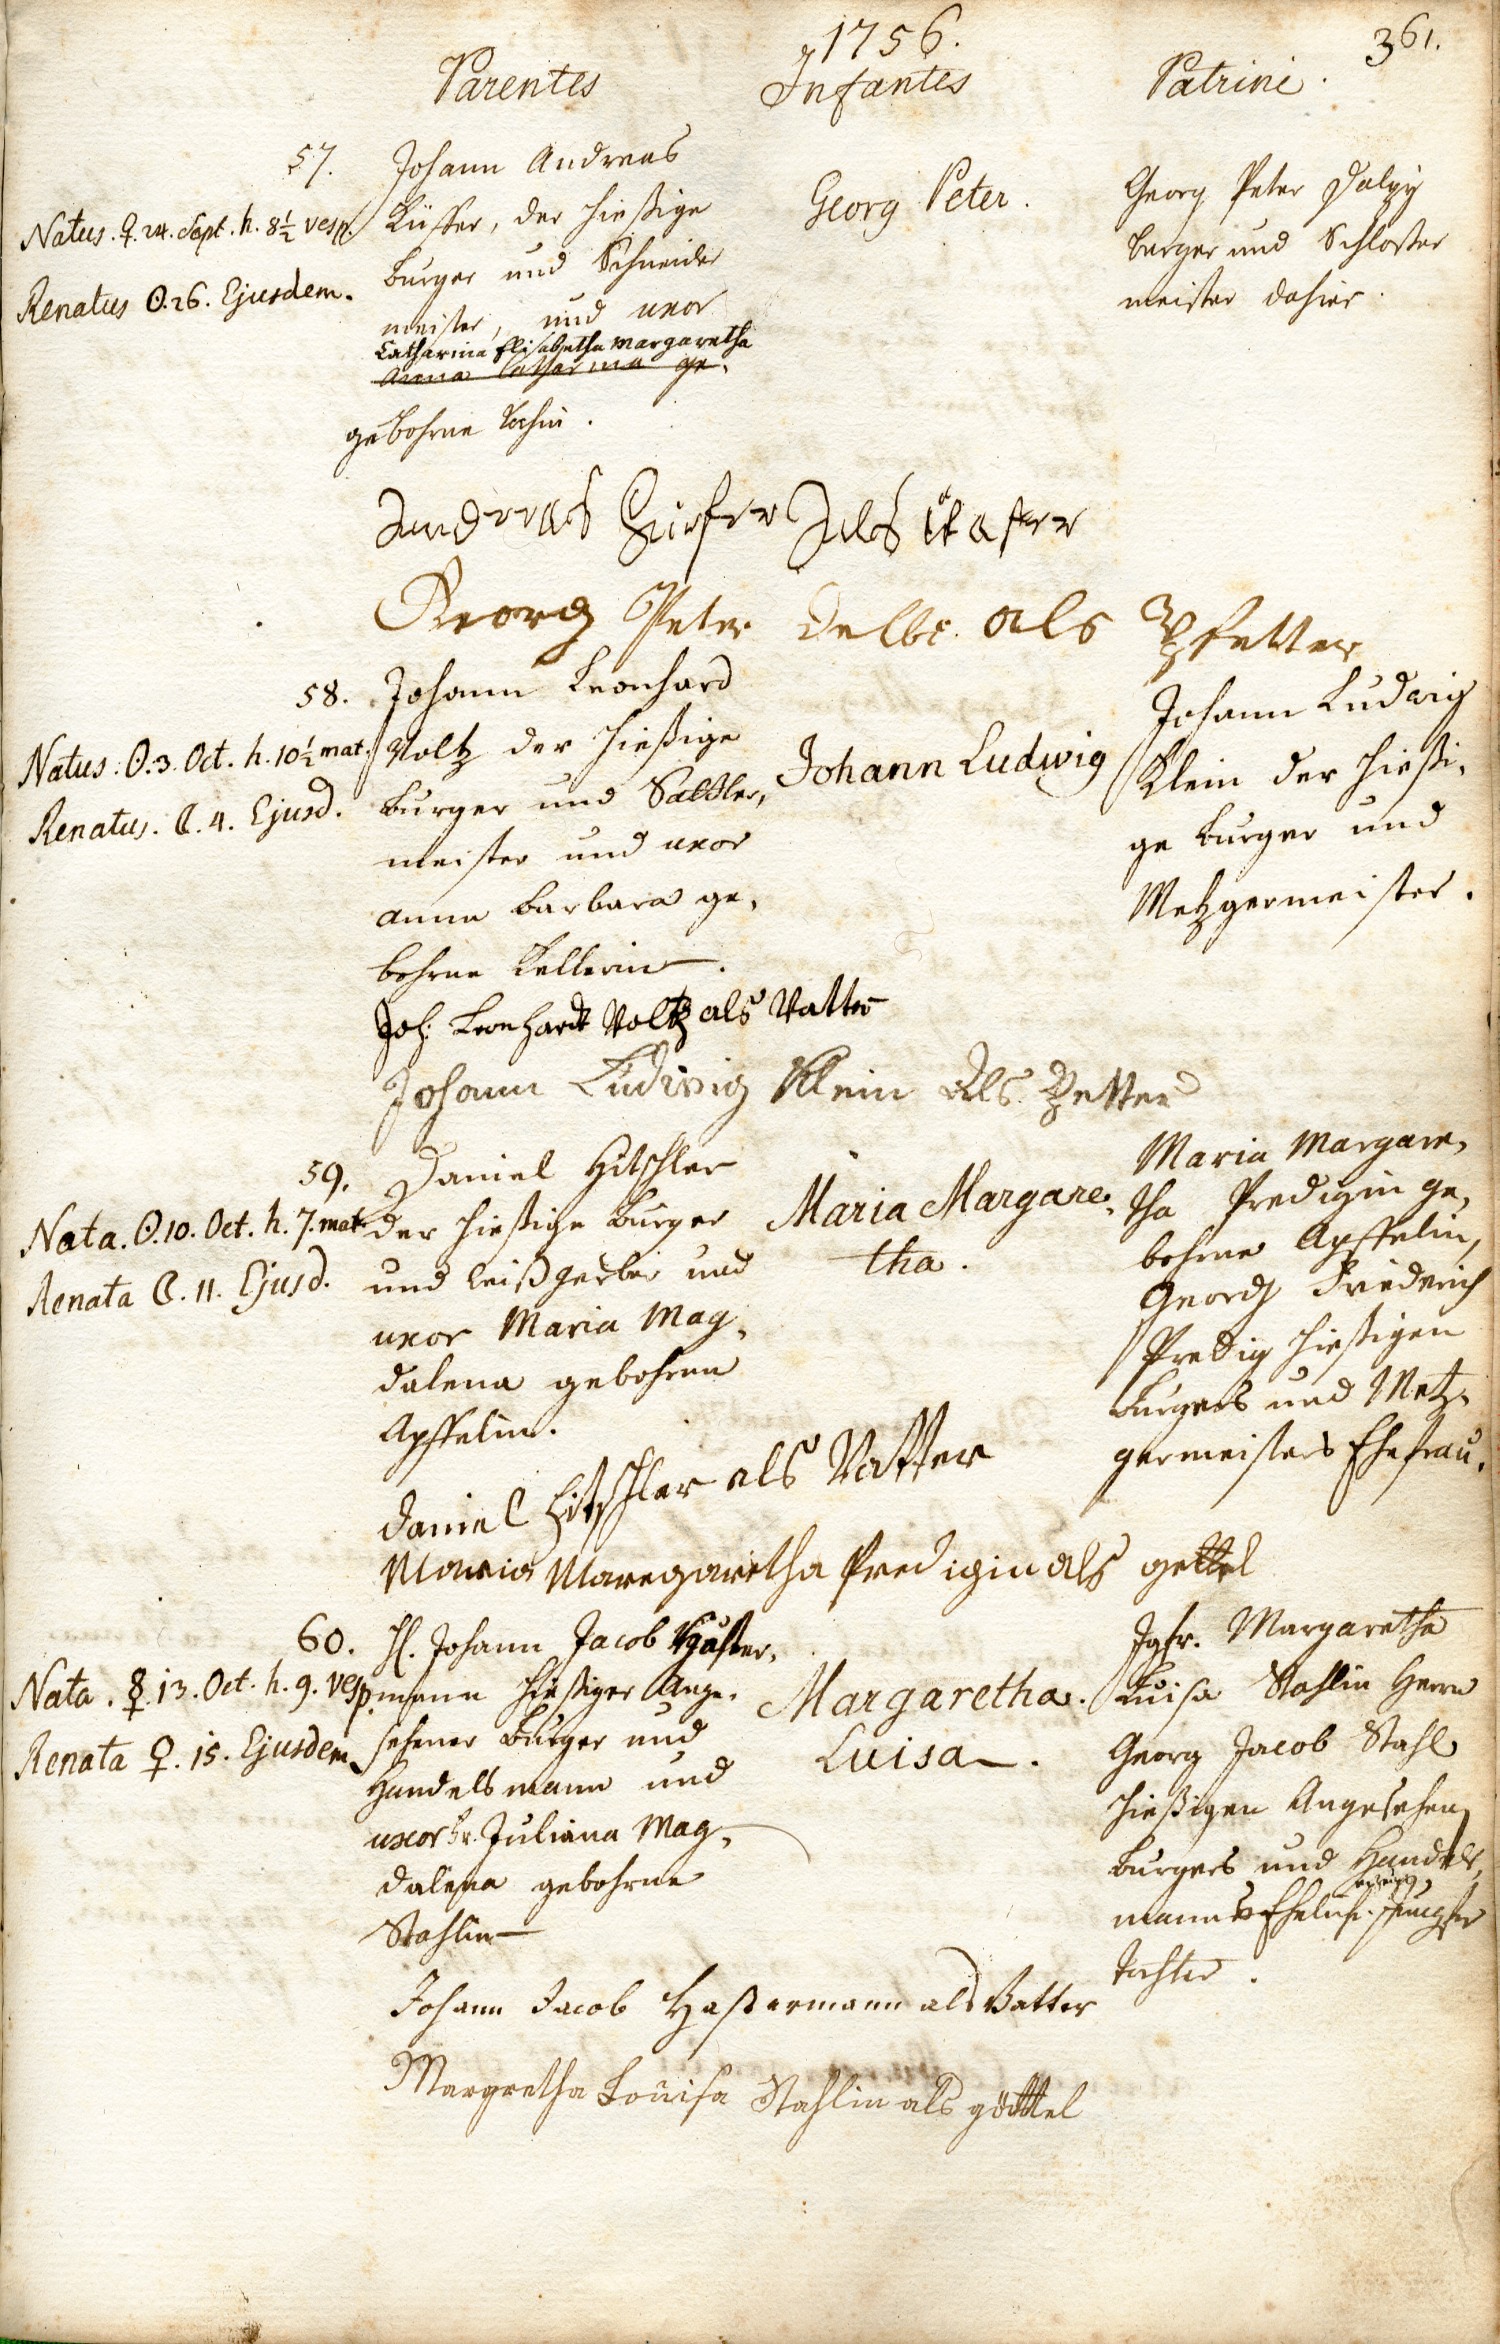 1756.
361.
Parentes
Infantes
Patrini.
57.
Natus. ♀. 24. Sept. h. 8½ vesp.
Renatus ☉. 26. Ejusdem.
Johann Andreas
Küffer, der hießige
burger und Schneider
meister, und uxor
Catharina Elisabetha Margaretha
Anna Catharina ge,
gebohrne
Georg Peter.
Georg Peter
burger und Schloßer
meister dahier.
Andreas Küefer Als
Georg Peter Delbe. als Pfetter
58.
Natus: ☉. 3. Oct. h. 10½ mat.
Renatus. ☾. 4. Ejusd.
Johann Leonhard
Voltz der hießige
burger und Sattler,
meister und uxor
Anna barbara ge,
bohrne Kellerin.
Johann Ludwig
Johann Ludwig
Klein der hießi,
ge burger und
Metzgermeister.
Joh. Leonhardt Voltz als Vatter
Johann Ludwig Klein Als Petter
59.
Nata. ☉. 10. Oct. h. 7. mat
Renata ☾. 11. Ejusd.
Daniel Hitschler
der hießige burger
und Weißgerber und
uxor Maria Mag,
dalena gebohrne
Apffelin.
Maria Margare,
tha.
Maria Margare,
tha Predigin ge,
bohrne Apffelin,
Georg Friederich
Predig hießigen
burgers und Metz,
germeisters Ehefrau.
Daniel Hitschler als Vatter
Maria Maregaretha Predigin als gettel
60.
Nata. ☿. 13. Oct. h. 9. vesp.
Renata ♀. 15. Ejusdem
H. Johann Jacob Haßer,
mann hießiger Ange,
sehener burger und
Handelsmann und
uxor Fr. Juliana Mag,
dalena gebohrne
Stahlin
Margaretha.
Luisa.
Jgfr. Margaretha
Luisa Stahlin Herrn
Georg Jacob Stahl
hießigen Angesehen
burgers und Handels,
manns Ehelich
Tochter.
Johann Jacob Haßermann als Vatter
Margretha Louisa Stahlin als göttel